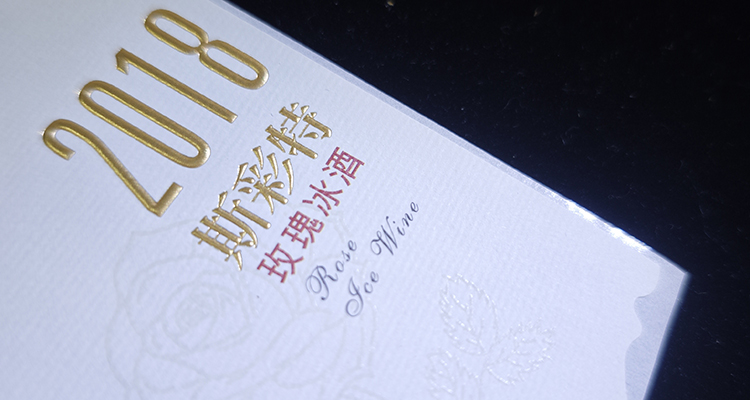 2018
斯彩特
玫瑰冰酒
Rose
Ice Wine